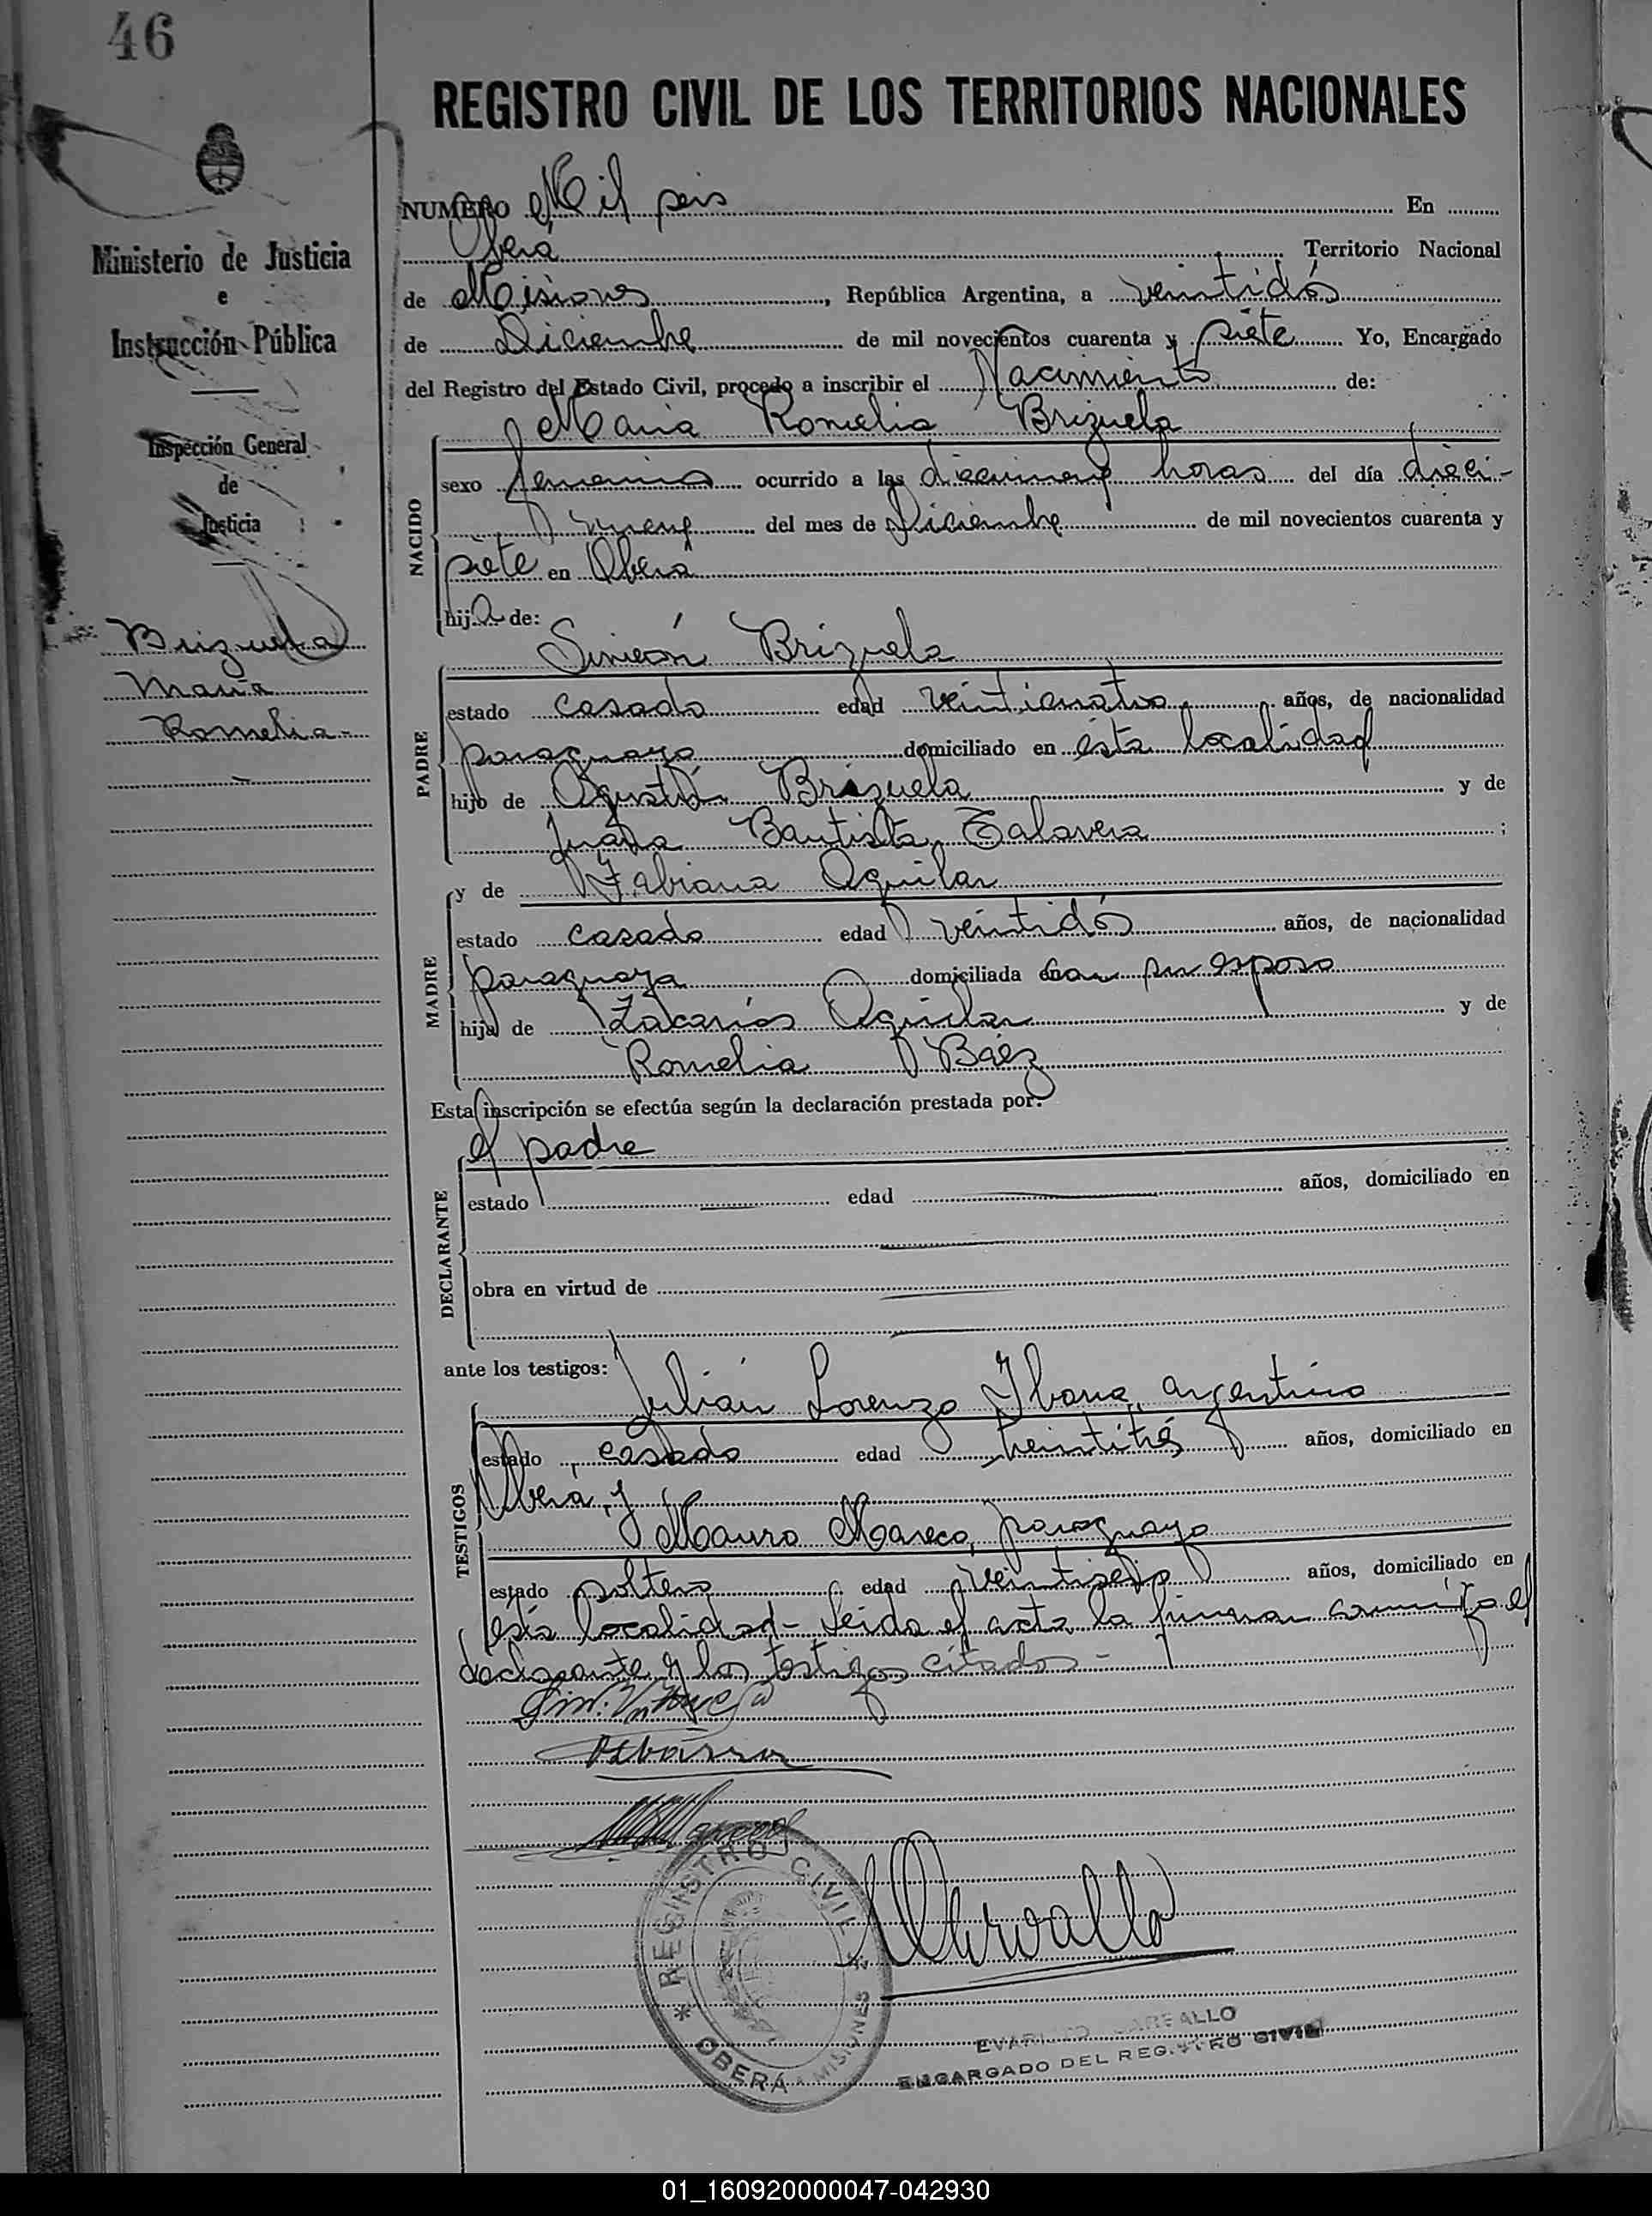 46
REGISTRO CIVIL DE LOS TERRITORIOS NACIONALES
Ministerio de Justicia
e
Instrucción Pública
Inspección General
de
Justicia
Brizuela
Maria
Romelia-
NUMERO Mil seis En
Oberá Territorio Nacional
de Misiones, República Argentina, a veintidós
de Diciembre de mil novecientos cuarenta y siete Yo, Encargado
del Registro del Estado Civil, procedo a inscribir el Nacimiento de:
Maria Romelia Brizuela
NACIDO
sexo femenino ocurrido a las diecinueve horas del día dieci-
nueve del mes de Diciembre de mil novecientos cuarenta y
siete en Oberá
hija de:
Simeón Brizuela
PADRE
estado casado edad veinticuatro años, de nacionalidad
paraguaya domiciliado en ésta localidad
hijo de Agustín Brizuela y de
Juana Bautista Talavera ;
y de Fabiana Aguilar
MADRE
estado casada edad veintidós años, de nacionalidad
paraguaya domiciliada con su esposo
hija de Zacarías Aguilar y de
Romelia Báez
Esta inscripción se efectúa según la declaración prestada por:
el padre
DECLARANTE
estado edad años, domiciliado en
obra en virtud de
ante los testigos:
Julián Lorenzo Ibarra, argentino
TESTIGOS
estado casado edad treintitrés años, domiciliado en
Oberá, y
Mauro Mareco, paraguayo
estado soltero edad años, domiciliado en
ésta localidad- Leida el acta la firman conmigo el
declarante y los testigos citados-
REGISTRO CIVIL
* OBERÁ * MISIONES
ENCARGADO DEL REGISTRO CIVIL
01_160920000047-042930